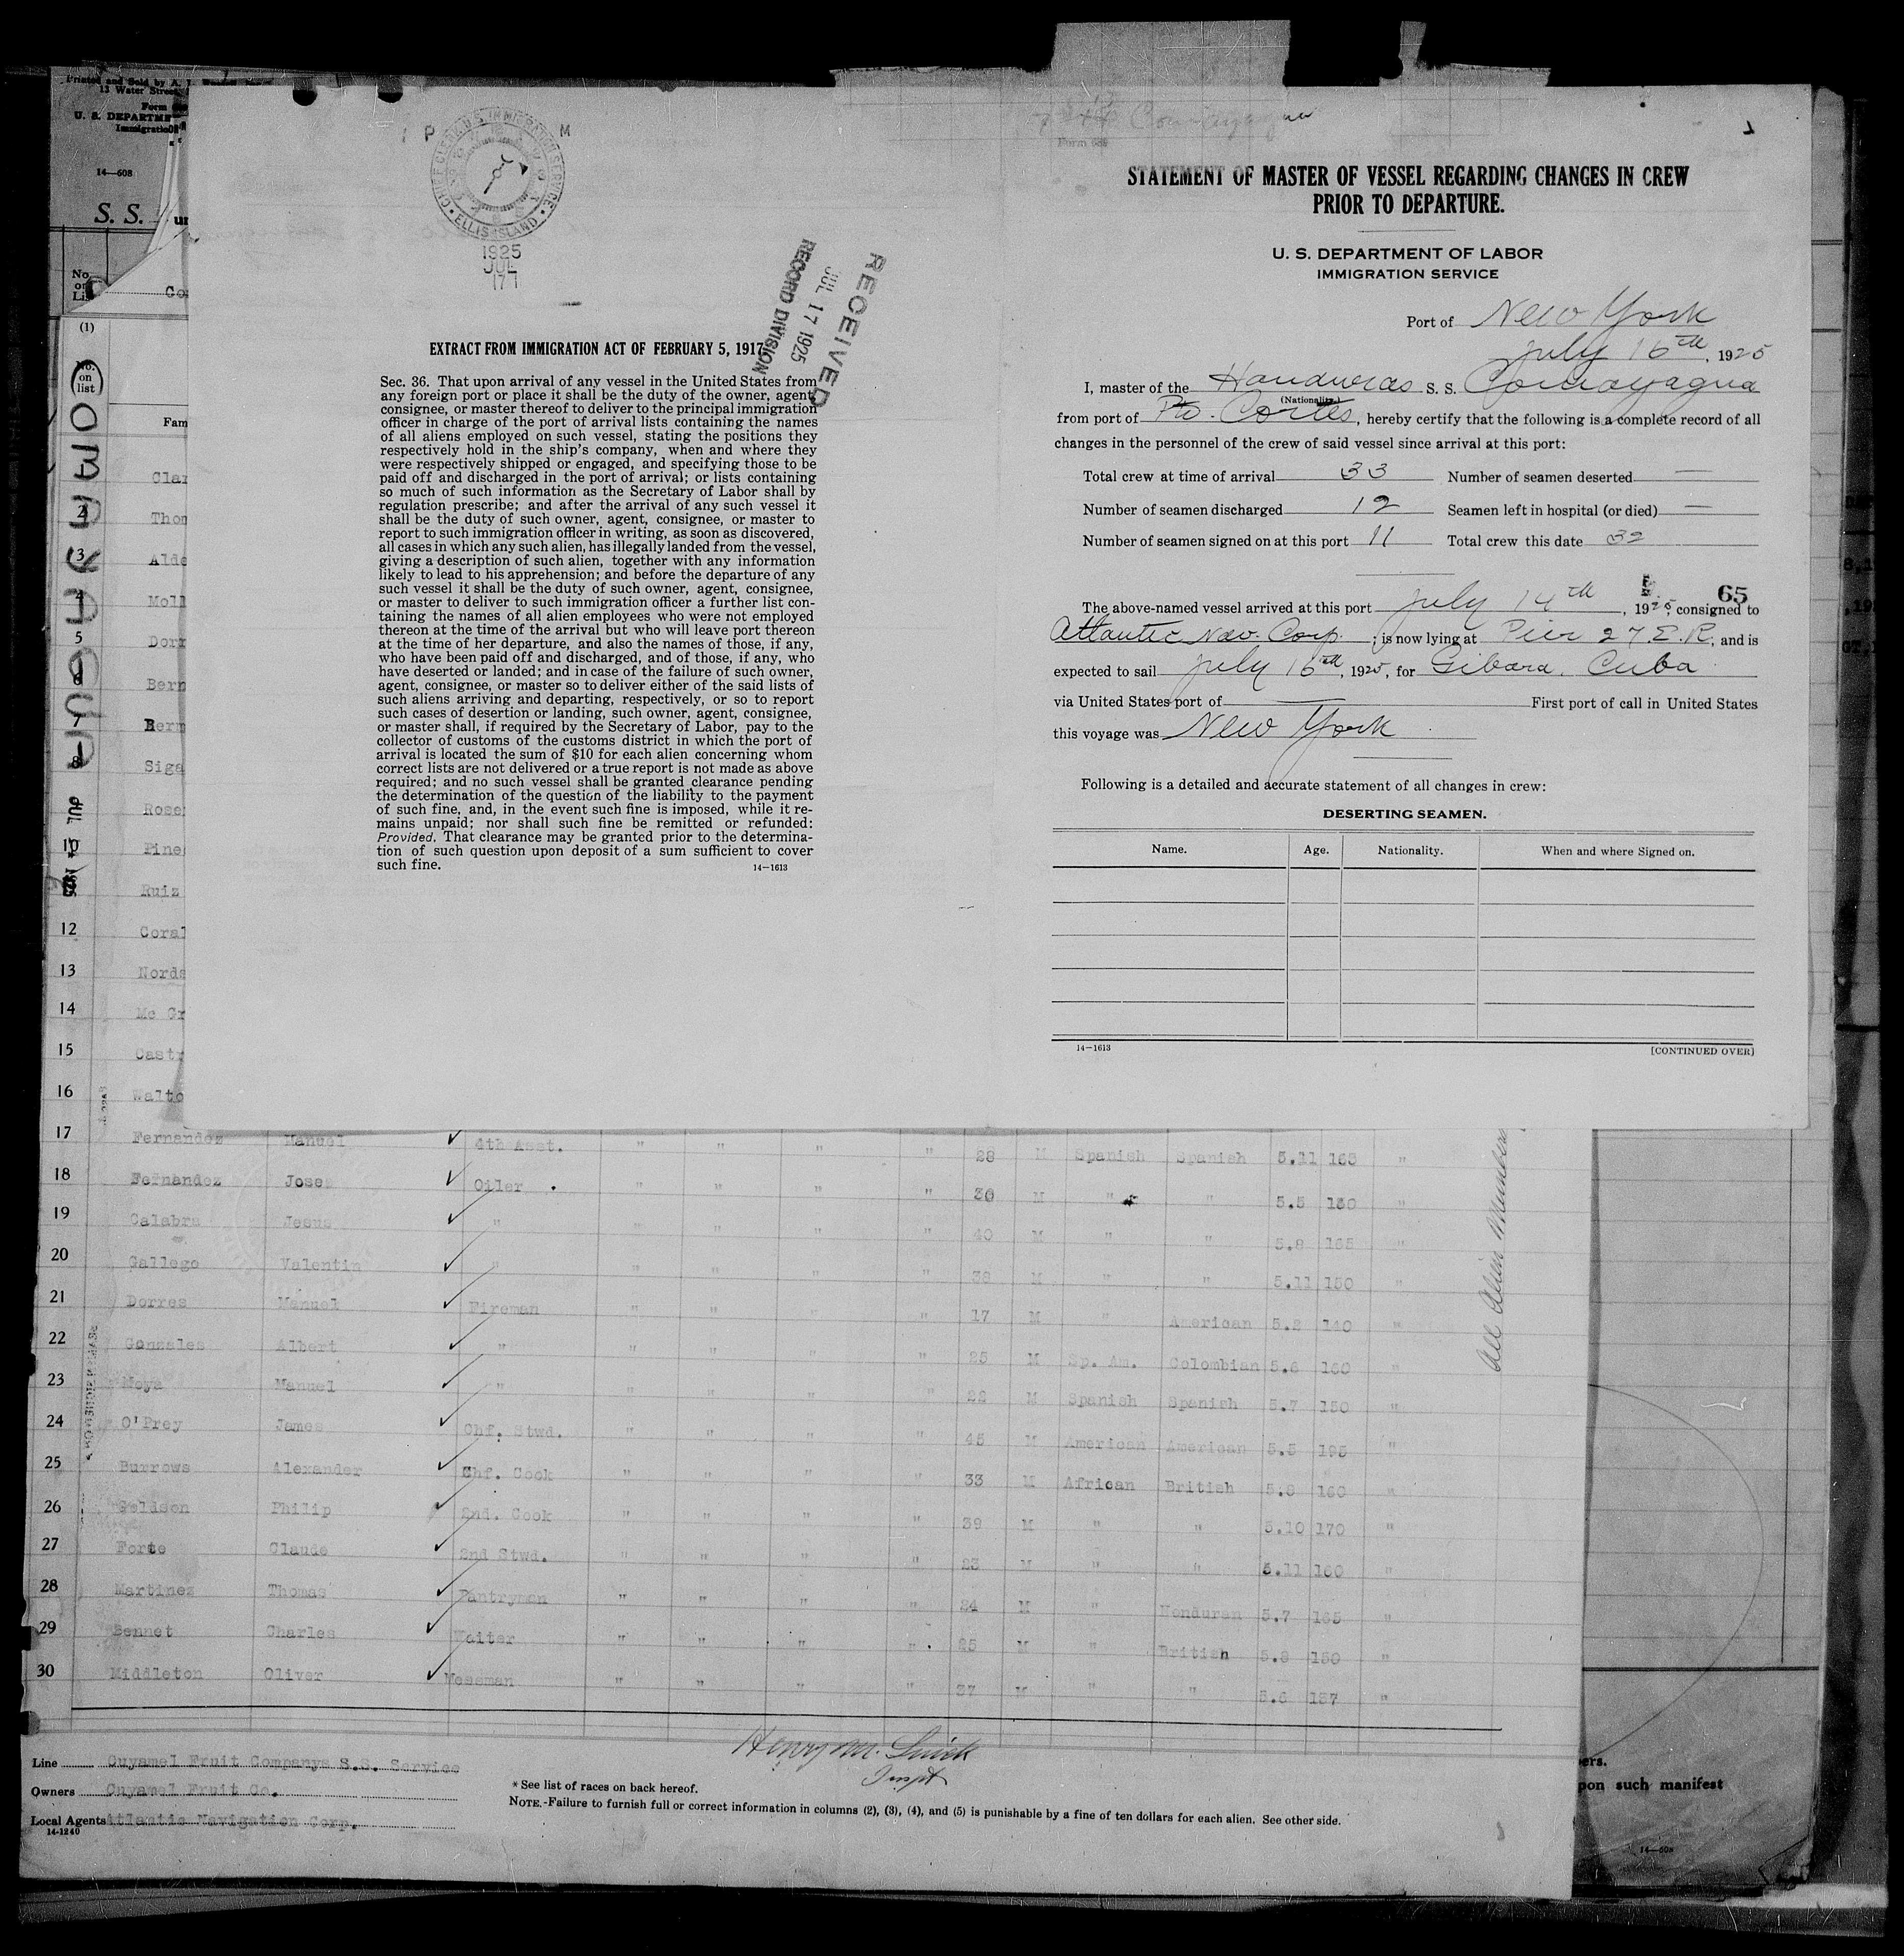 Printed and Sold by A.
13 Water Street
Form
U. S. DEPARTME
Immigratio
14—608
S. S.
No.
on
Li
Co
(1)
No.
on
list
Fam
P M
CHIEF CLERK U.S. IMMIGRATION SERVICE
ELLIS ISLAND
1925
JUL
17
RECEIVED
JUL 17 1925
RECORD DIVISION
EXTRACT FROM IMMIGRATION ACT OF FEBRUARY 5, 1917
Sec. 36. That upon arrival of any vessel in the United States from
any foreign port or place it shall be the duty of the owner, agent,
consignee, or master thereof to deliver to the principal immigration
officer in charge of the port of arrival lists containing the names
of all aliens employed on such vessel, stating the positions they
respectively hold in the ship's company, when and where they
were respectively shipped or engaged, and specifying those to be
paid off and discharged in the port of arrival; or lists containing
so much of such information as the Secretary of Labor shall by
regulation prescribe; and after the arrival of any such vessel it
shall be the duty of such owner, agent, consignee, or master to
report to such immigration officer in writing, as soon as discovered,
all cases in which any such alien, has illegally landed from the vessel,
giving a description of such alien, together with any information
likely to lead to his apprehension; and before the departure of any
such vessel it shall be the duty of such owner, agent, consignee,
or master to deliver to such immigration officer a further list con-
taining the names of all alien employees who were not employed
thereon at the time of the arrival but who will leave port thereon
at the time of her departure, and also the names of those, if any,
who have been paid off and discharged, and of those, if any, who
have deserted or landed; and in case of the failure of such owner,
agent, consignee, or master so to deliver either of the said lists of
such aliens arriving and departing, respectively, or so to report
such cases of desertion or landing, such owner, agent, consignee,
or master shall, if required by the Secretary of Labor, pay to the
collector of customs of the customs district in which the port of
arrival is located the sum of $10 for each alien concerning whom
correct lists are not delivered or a true report is not made as above
required; and no such vessel shall be granted clearance pending
the determination of the question of the liability to the payment
of such fine, and, in the event such fine is imposed, while it re-
mains unpaid; nor shall such fine be remitted or refunded:
Provided, That clearance may be granted prior to the determina-
tion of such question upon deposit of a sum sufficient to cover
such fine.
14—1613
Form 689
STATEMENT OF MASTER OF VESSEL REGARDING CHANGES IN CREW
PRIOR TO DEPARTURE.
U. S. DEPARTMENT OF LABOR
IMMIGRATION SERVICE
Port of New York
July 16th, 1925
I, master of the Honduras S. S. Comayagua
(Nationality)
from port of Pto. Cortes, hereby certify that the following is a complete record of all
changes in the personnel of the crew of said vessel since arrival at this port:
Total crew at time of arrival 33 Number of seamen deserted —
Number of seamen discharged 12 Seamen left in hospital (or died) —
Number of seamen signed on at this port 11 Total crew this date 32
65
The above-named vessel arrived at this port July 14th, 1925, consigned to
Atlantic Nav. Corp.; is now lying at Pier 27 E.R., and is
expected to sail July 16th, 1925, for Gibara, Cuba
via United States port of — First port of call in United States
this voyage was New York
Following is a detailed and accurate statement of all changes in crew:
DESERTING SEAMEN.
Name. Age. Nationality. When and where Signed on.
14—1613
[CONTINUED OVER]
Clar
2 Thom
3 Alde
4 Moll
5 Dorr
6 Bern
7 Berm
8 Siga
Rose
10 Pine
Ruiz
12 Coral
13 Nords
14 Mc Gr
15 Castr
16 Walto
17 Fernandez Manuel 4th Asst. " " " " 28 M Spanish Spanish 5.11 163 "
18 Fernandez Jose Oiler " " " " 30 M " " 5.5 150 "
19 Calabra Jesus " " " " " 40 M " " 5.8 165 "
20 Gallego Valentin " " " " " 38 M " " 5.11 150 "
21 Dorres Manuel Fireman " " " " 17 M " American 5.2 140 "
22 Gonzales Albert " " " " " 25 M Sp. Am. Colombian 5.6 160 "
23 Moya Manuel " " " " " 22 M Spanish Spanish 5.7 150 "
24 O'Prey James Chf. Stwd. " " " " 45 M American American 5.5 195 "
25 Burrows Alexander Chf. Cook " " " " 33 M African British 5.8 160 "
26 Goldson Philip 2nd. Cook " " " " 39 M " " 5.10 170 "
27 Forte Claude 2nd Stwd. " " " " 23 M " " 5.11 160 "
28 Martinez Thomas Pantryman " " " " 24 M " Honduran 5.7 165 "
29 Bennet Charles Waiter " " " " 25 M " British 5.9 150 "
30 Middleton Oliver Messman " " " " 37 M " " 5.6 157 "
All Alien Members
Line Cuyamel Fruit Companys S.S. Service
Owners Cuyamel Fruit Co.
Local Agents Atlantic Navigation Corp.
14-1240
Henry M.
Inspt
* See list of races on back hereof.
NOTE.-Failure to furnish full or correct information in columns (2), (3), (4), and (5) is punishable by a fine of ten dollars for each alien. See other side.
pon such manifest
14—608